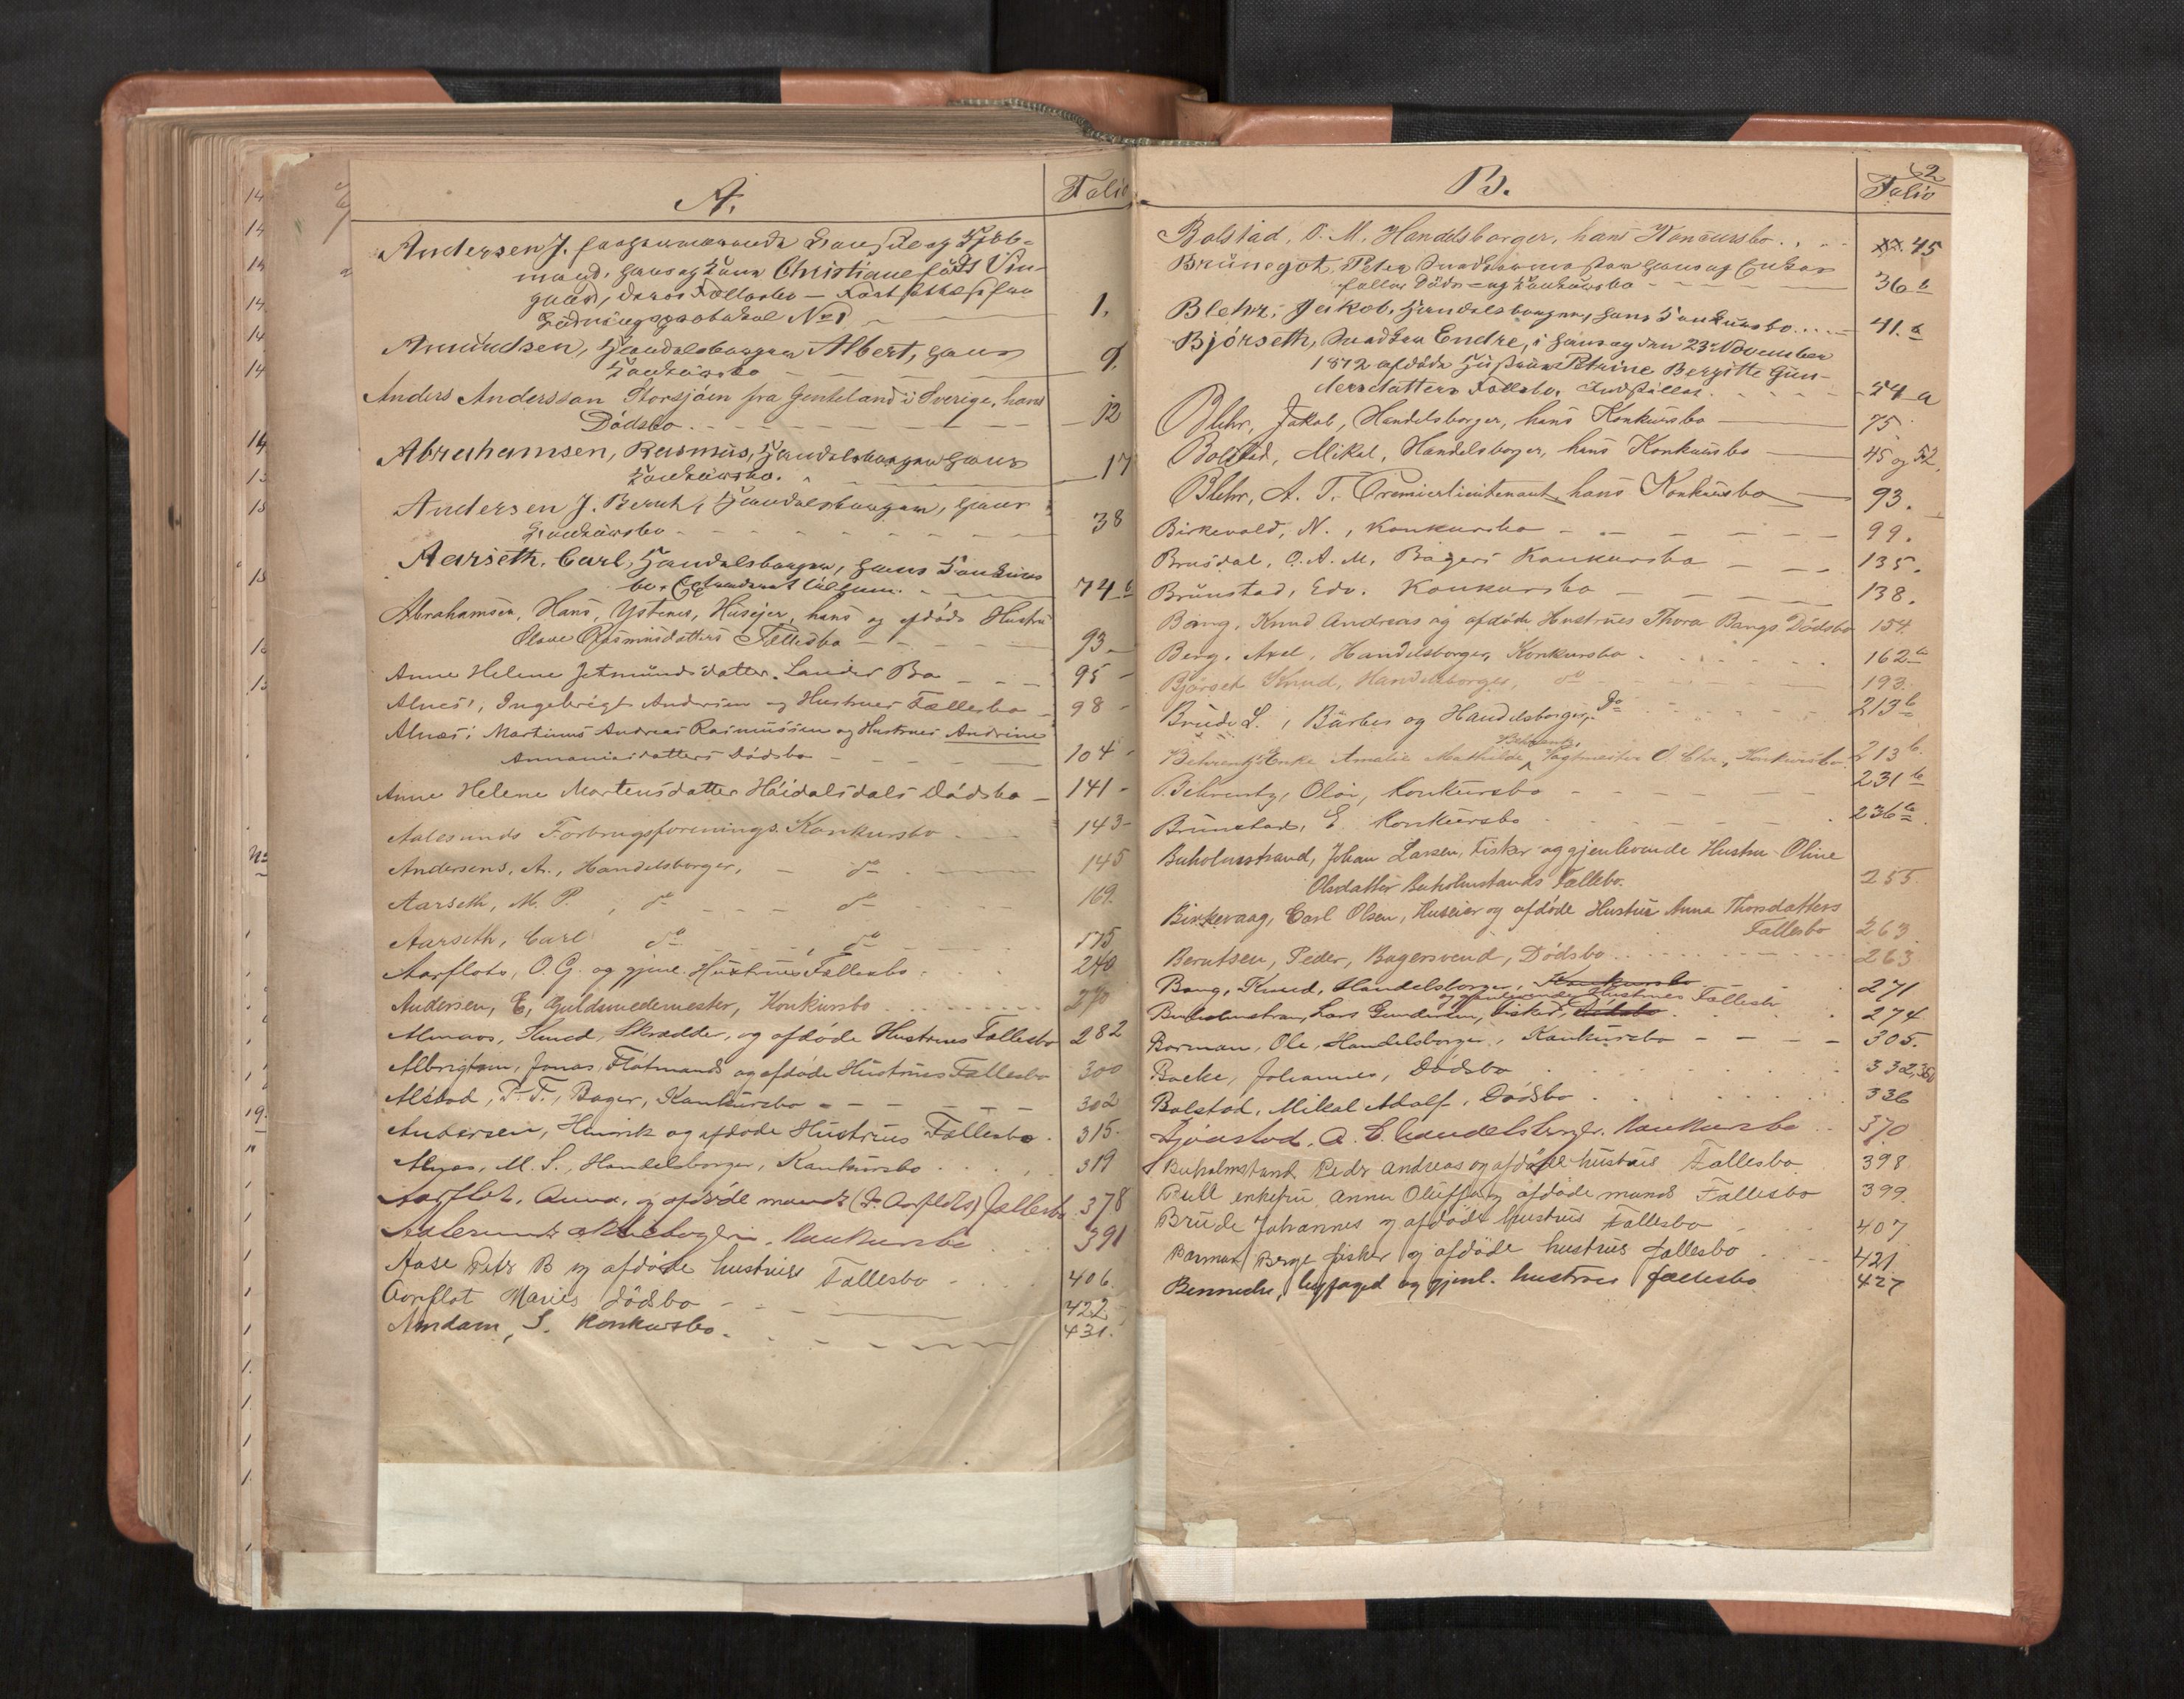 A.
Folio
Andersen J. forhenværende Konsul og Kjøb-
mand, hans og Kone Christiane født Vin-
gaard, deres Fællesbo – Fortsættelse fra
Ludningsprotokol No 1
1.
Amundsen, Handelsborger Albert, hans
Konkursbo
9.
Anders Andersson Storsjöen fra Jemteland i Sverige, hans
Dødsbo
12
Abrahamsen, Rasmus, Handelsborger hans
Konkursbo.
17
Andersen J. Bernh, Handelsborger, hans
Konkursbo
38
Aarseth, Carl, Handelsborger, hans Konkurs
bo.
74 b
Abrahamsen, Hans, Ystenes, Huseier, hans og afdøde Hustru
Olave Rasmusdatters Fællesbo
93
Anne Helene Jetmundsdatter Landes Bo
95
Alnes, Ingebrigt Andersen og Hustrues Fællesbo
98
Alnæs, Martinus Andreas Rasmussen og Hustrues Andrine
Annaniasdatters Dødsbo
104
Anne Helene Mortensdatter Höidalsdals Dødsbo
141
Aalesunds Forbrugsforenings Konkursbo
143
Andersens, A., Handelsborger, do
145
Aarseth, M. P., do do
169.
Aarseth, Carl do do
175
Aarflots, O. G. og gjenl. Hustrues Fællesbo
240
Andersen, E, Guldsmedemester, Konkursbo
270
Almaas, Knud, Skrædder, og afdøde Hustrues Fællesbo
282
Albrigtsen, Jonas, Flotmands og afdøde Hustrues Fællesbo
300
Alstad, P. T., Bager, Konkursbo
302
Andersen, Henrik og afdøde Hustrues Fællesbo
315
Myas, M. S., Handelsborger, Konkursbo
319
Aarflot, Anna, og afdøde mands (J. Aarflots) Fællesbo
378
Aalesunds Konkursbo
391
Aase Peter B og afdøde hustrues Fællesbo
406.
Aarflot Maries dödsbo
422
Amdam, S. Konkursbo.
431.
B.
62
Folio
Bolstad, O. M. Handelsborger, hans Konkursbo
45
Brünegot, Peter hans og Enkes
fælles Døds- og Konkursbo
36 b
Blehr, Jakob, Handelsborger, hans Konkursbo
41. a
Björseth, Endre, i hans og den 23de November
1872 afdøde Hustrues Petrine Bergitte Gun-
dersdatters Fællesbo,
54 a
Blehr, Jakob, Handelsborger, hans Konkursbo
75
Bolstad, Mikal, Handelsborger, hans Konkursbo
45 og 52.
Blehr, A. T. Premierlieutenant, hans Konkursbo
93.
Birkevold, N., Konkursbo
99.
Brusdal, O. A. M. Bagers Konkursbo
135.
Brünstad, Edv. Konkursbo
138.
Bang, Knud Andreas og afdøde Hustrues Thora Bangs Dödsbo
154.
Berg, Axel, Handelsborger, Konkursbo
162 b
Björset Knud, Handelsborger, do
193
Brude L., Barber og Handelsborger, Do
213 b
Behrentz's Enke Amalie Mathilde Behrentz, Vagtmester O. Chr., Konkursbo
213 b.
Behrentz, Olai, Konkursbo
231 b
Brunstad, E. Konkursbo
236 b
Buholmstrand, Johan Larsen, Fisker og gjenlevende Hustru Oline
Olsdatter Buholmstrands Fællesbo.
255
Birkevaag, Carl Olsen, Huseier og afdøde Hustru Anna Thorsdatters
Fællesbo
263
Berntsen, Peder, Bagersvend, Dödsbo
263
Bang, Knud, Handelsborger, Konkursbo
271
og gjenlevende Hustrues Fællesbo
Buholmstran, Lars Gundersen, Fisker, Dødsbo
274
Borman, Ole, Handelsborger, Konkursbo
305.
Bakke, Johannes, Dødsbo
332,360
Bolstad, Mikal Adolf, Dödsbo
336
Bjönstad, A. E. handelsborger, Konkursbo
370
Buholmstrand Peder Andreas og afdøde hustrues Fællesbo
398
Bull enkefru Anna Oluffa og afdøde mands Fællesbo
399.
Brude Johannes og afdøde hustrues Fællesbo
407
Borman Berge fisker og afdøde hustrues fællesbo
421
Bennecke, byfoged og gjenl. hustrues fællesbo
427